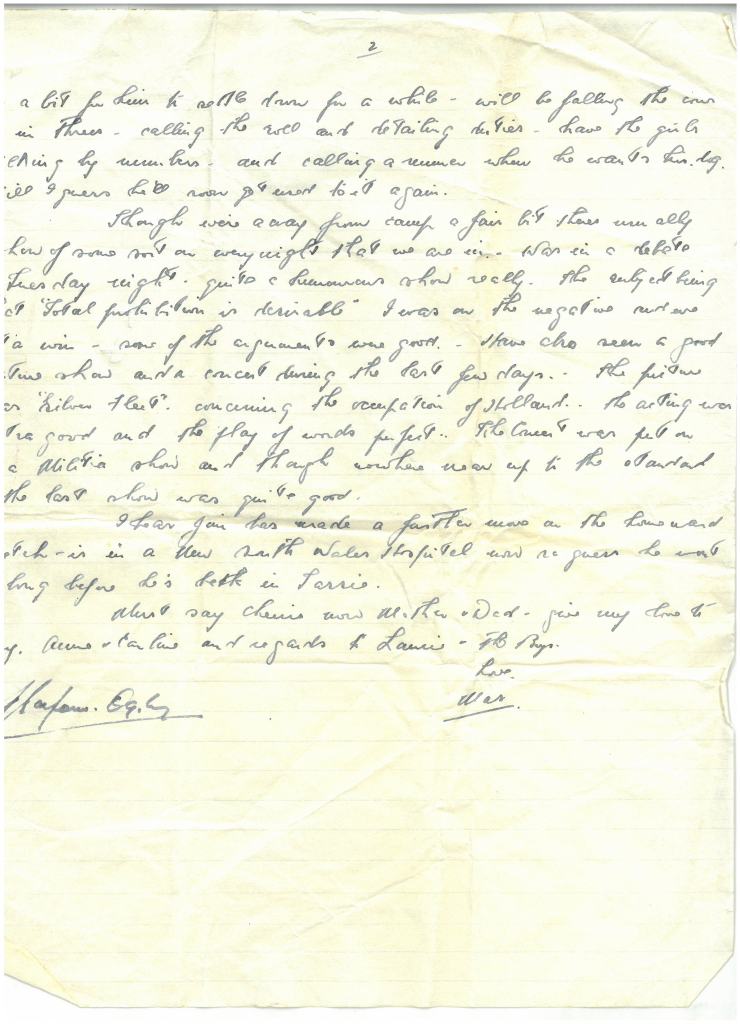 2
a bit for him to settle down for a while - will be falling the cows
in threes - calling the roll and detailing duties - have the girls
by numbers - and calling a runner when he wants his dog.
I guess he'll soon get used to it again.
Though we're away from camp a fair bit there's usually
how of some sort on every night that we are in. - Was in a debate
Tuesday night - quite a humourous show really. The subject being
at "Total prohibition is desirable" I was on the negative and we
a win - some of the arguments were good. - Have also seen a good
ture show and a concert during the last few days. - The picture
as "Silver Fleet". concerning the occupation of Holland.. the acting was
tra good and the play of words perfect.. The Concert was put on
a Militia show and though nowhere near up to the standard
the last show was quite good.
I hear Jim has made a further move on the homeward
etch - is in a New South Wales Hospital now so guess he wont
long before he's back in Tassie.
Must say cheerio now Mother & Dad - give my love to
y. Anne & and regards to Laurie & The Boys.
Love.
Max.
Ogilvy